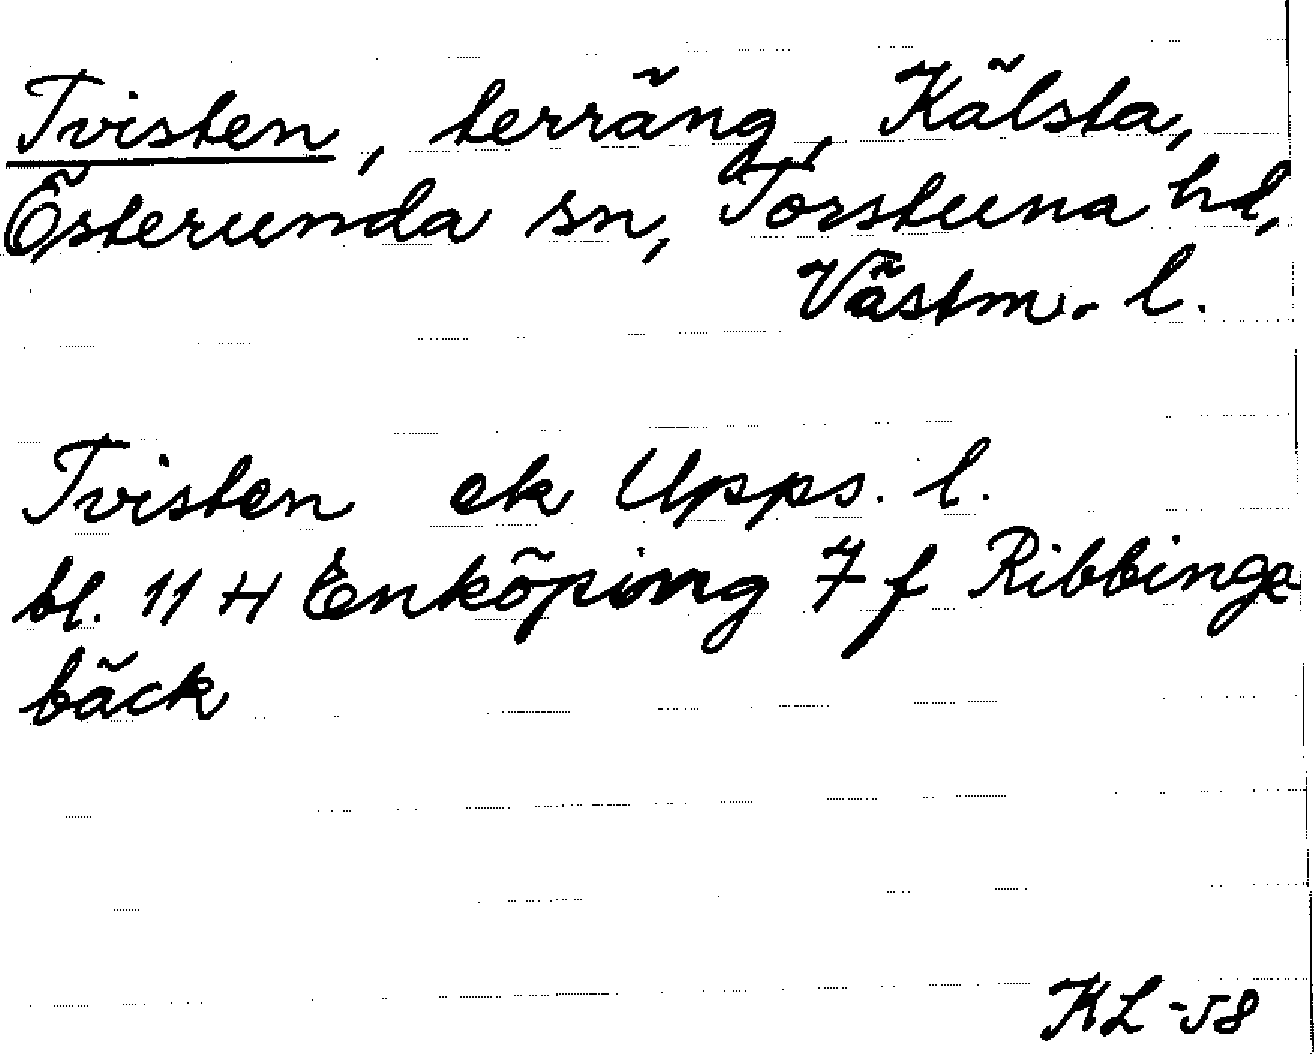 Tvisten, terräng, Kälsta,
Österunda sn, Torstuna hd,
Västm. l.
Tvisten ek Upps. l.
bl. 11 H Enköping 7 f Ribbinge
bäck
KL -58